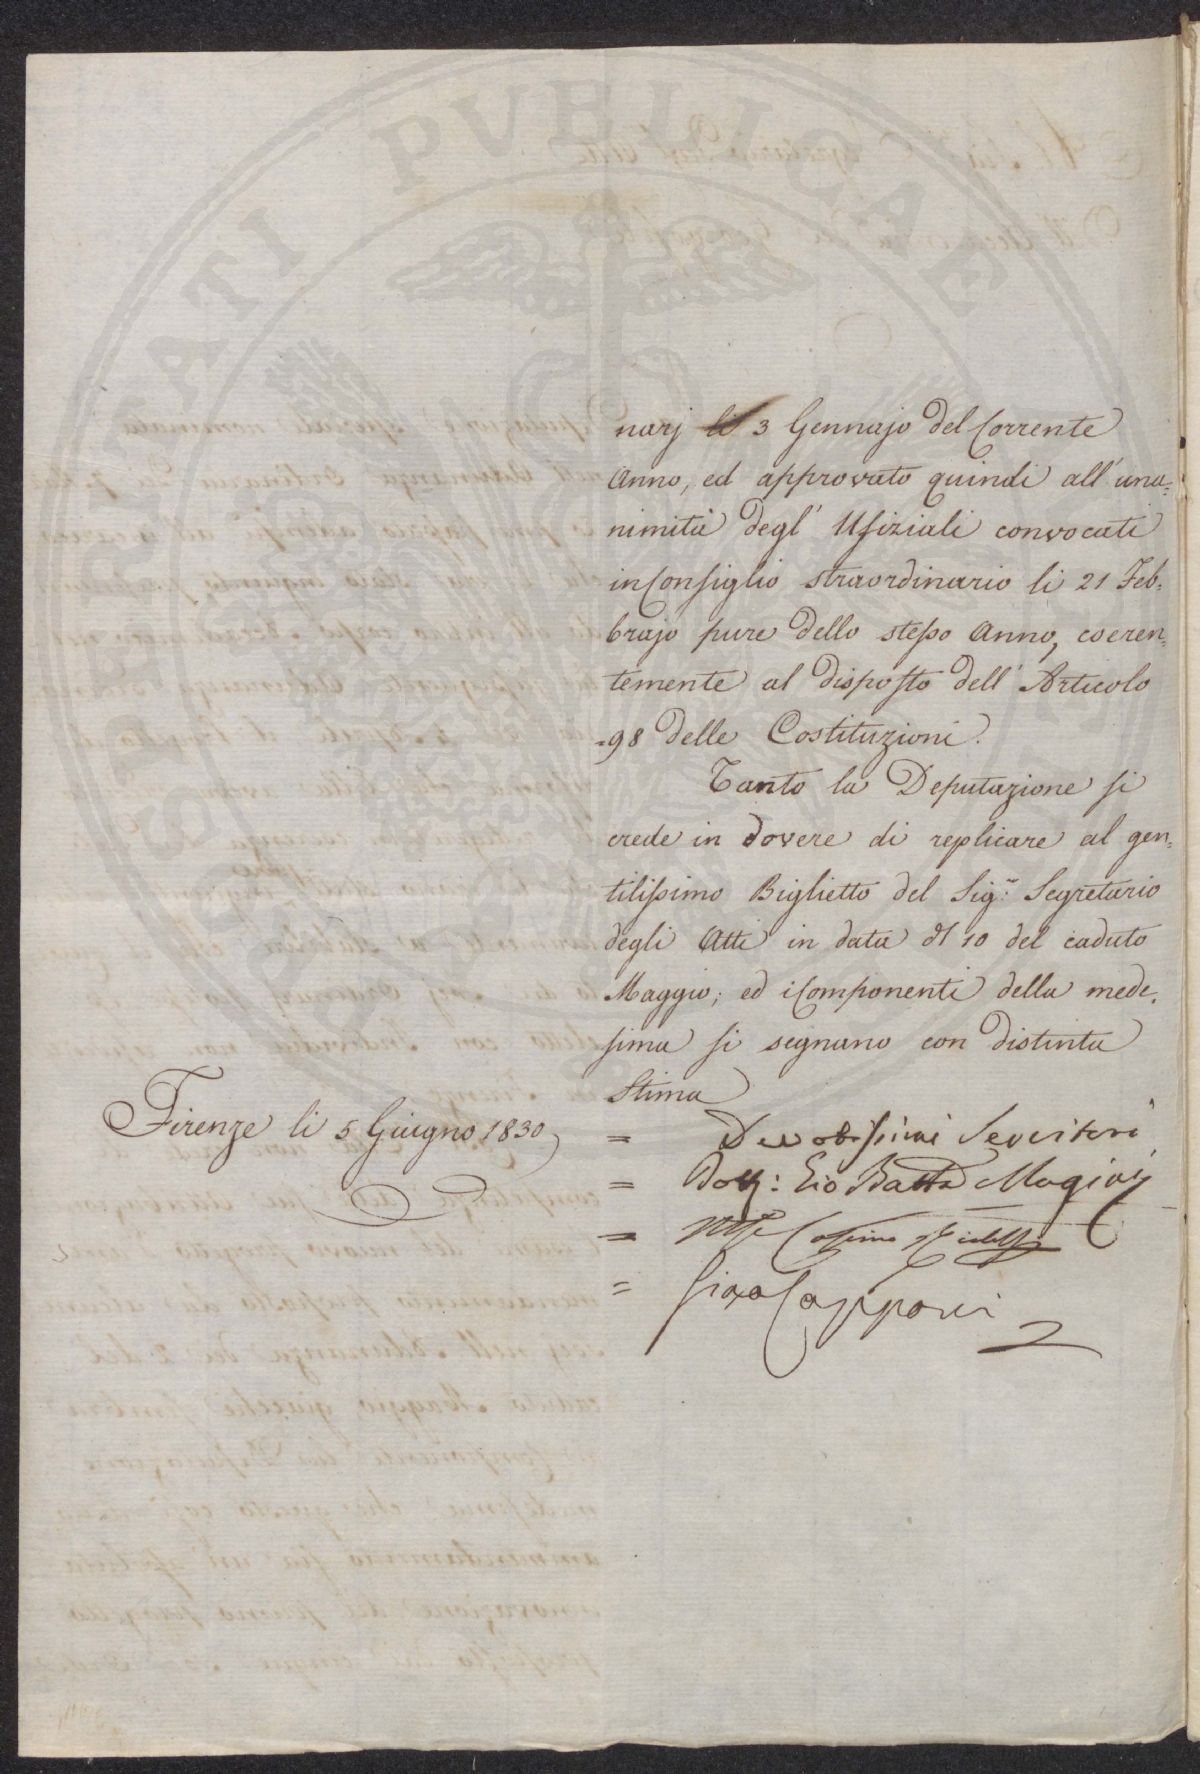 narj li 3 Gennajo del Corrente
Anno, ed approvato quindi all'una=
nimità degl' Ufiziali convocati
in Consiglio straordinario li 21 Feb=
brajo pure dello stesso Anno, coeren=
temente al disposto dell' Articolo
98 delle Costituzioni.
Tanto la Deputazione si
crede in dovere di replicare al gen=
tilissimo Biglietto del Sig.r Segretario
degli Atti in data de' 10 del caduto
Maggio; ed i Componenti della mede=
sima si segnano con distinta
Stima
Firenze li 5 Giugno 1830
= Devotissimi Servitori
= Dott: Gio Batta Magini
= Cosimo Ridolfi
= Gino Capponi
PVBLICAE